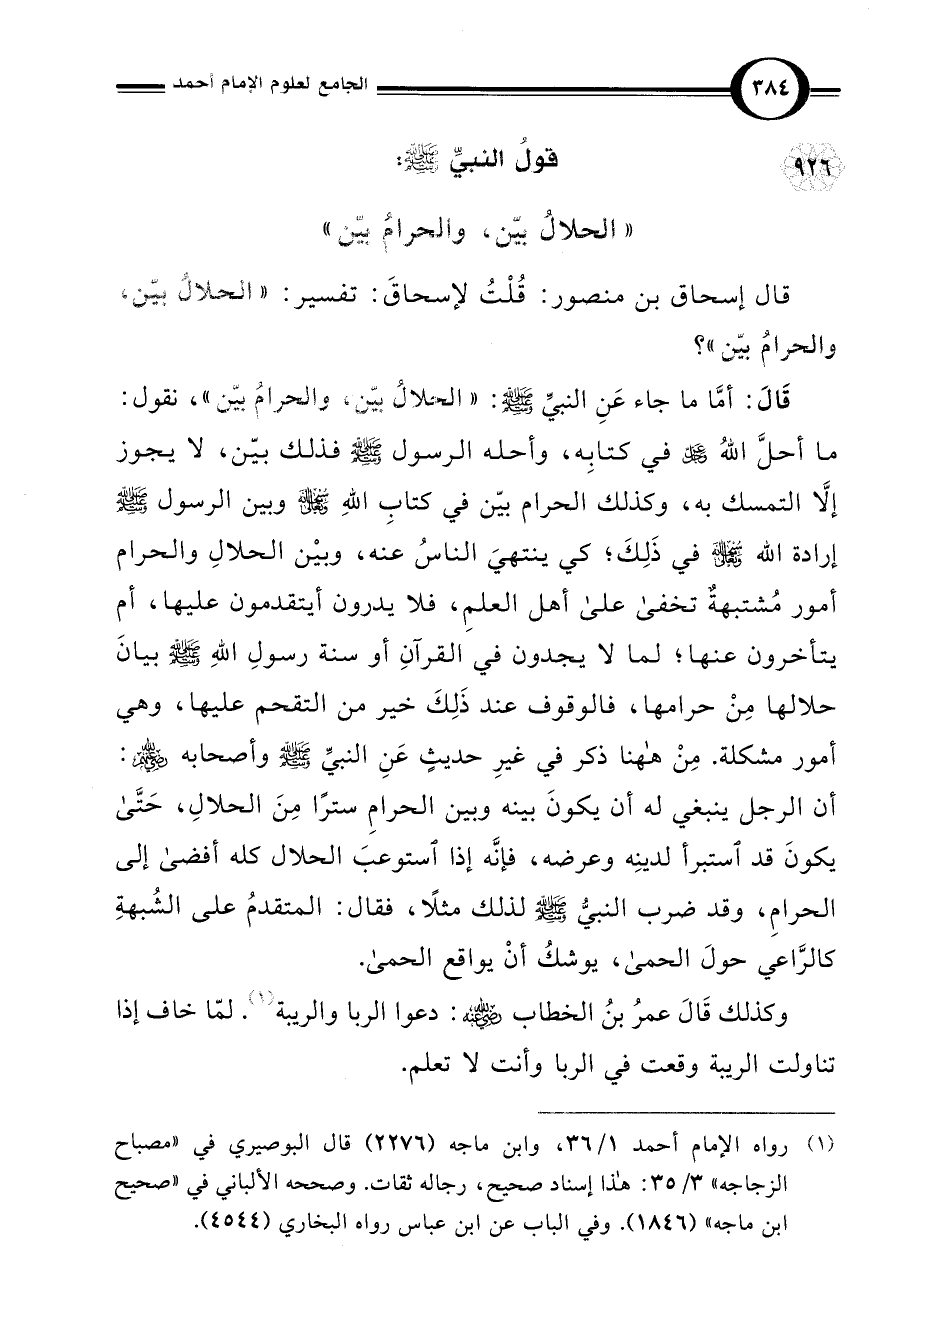 ٣٨٤ الجامع لعلوم الإمام أحمد
٩٢٦ قولُ النبيِّ ﷺ:
« الحلالُ بيّن، والحرامُ بيّن»
قال إسحاق بن منصور: قُلْتُ لإسحاقَ: تفسير: « الحلالُ بيّن،
والحرامُ بيّن »؟
قَالَ: أمَّا ما جاء عَنِ النبيِّ ﷺ: « الحلالُ بيّن، والحرامُ بيّن»، نقول:
ما أحلَّ اللهُ ﷻ في كتابِه، وأحله الرسول ﷺ فذلك بيّن، لا يجوز
إلَّا التمسك به، وكذلك الحرام بيّن في كتابِ اللهِ ﷾ وبين الرسول ﷺ
إرادة الله ﷾ في ذَلِكَ؛ كي ينتهيَ الناسُ عنه، وبيْن الحلالِ والحرام
أمور مُشتبهةٌ تخفىٰ علىٰ أهل العلمِ، فلا يدرون أيتقدمون عليها، أم
يتأخرون عنها؛ لما لا يجدون في القرآنِ أو سنة رسولِ اللهِ ﷺ بيانَ
حلالها مِنْ حرامها، فالوقوف عند ذَلِكَ خير من التقحم عليها، وهي
أمور مشكلة. مِنْ هٰهنا ذكر في غيرِ حديثٍ عَنِ النبيِّ ﷺ وأصحابه ﵃:
أن الرجل ينبغي له أن يكونَ بينه وبين الحرامِ سترًا مِنَ الحلالِ، حَتَّىٰ
يكونَ قد ٱستبرأ لدينِه وعرضه، فإنَّه إذا ٱستوعبَ الحلال كله أفضىٰ إلى
الحرامِ، وقد ضرب النبيُّ ﷺ لذلك مثلًا، فقال: المتقدمُ على الشُبهةِ
كالرَّاعي حولَ الحمىٰ، يوشكُ أنْ يواقع الحمىٰ.
وكذلك قَالَ عمرُ بنُ الخطاب ﵁: دعوا الربا والريبة(١). لمّا خاف إذا
تناولت الريبة وقعت في الربا وأنت لا تعلم.
(١) رواه الإمام أحمد ٣٦/١، وابن ماجه (٢٢٧٦) قال البوصيري في «مصباح
الزجاجه» ٣٥/٣: هٰذا إسناد صحيح، رجاله ثقات. وصححه الألباني في «صحيح
ابن ماجه» (١٨٤٦). وفي الباب عن ابن عباس رواه البخاري (٤٥٤٤).